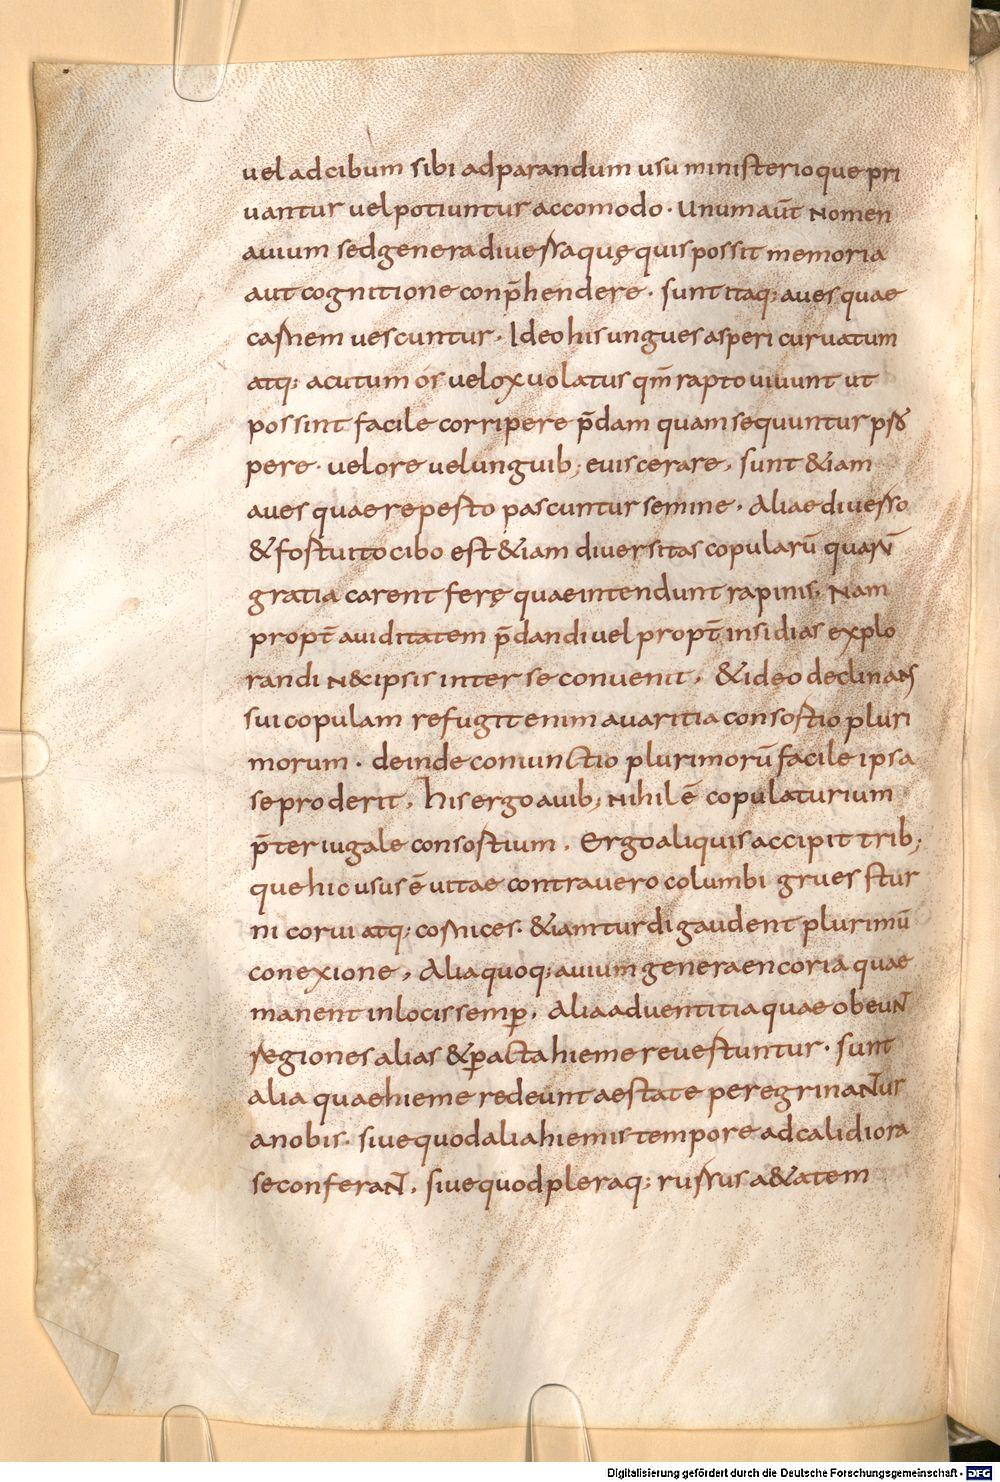 uel ad cibum sibi adparandum usu ministerioque pri
uantur uel potiuntur accomodo · Unum aut̄ nomen
auium sed genera diuersa quę quis possit memoria
aut cognitione conp̄hendere · sunt itaq; aues quae
carnem uescuntur · Ideo his ungues asperi curuatum
atq; acutum os uelox uolatus qm̄ rapto uiuunt ut
possint facile corripere p̄dam quam sequuntur
pere · uel ore uel unguib; euiscerare , sunt &iam
aues quae reperto pascuntur semine · Aliae diuerso
& fortuito cibo est &iam diuersitas copularū quarū
gratia carent ferę quae intendunt rapinis , Nam
propt̄ auiditatem p̄dandi uel propt̄ insidias explo
randi n& ipsis inter se conuenit , & ideo declinans
sui copulam refugit enim auaritia consortio pluri
morum · deinde coniunctio plurimorū facile ipsa
se proderit , his ergo auib; nihil ē copulaturium
p̄ter iugale consortium , Ergo aliquis accipit trib;
que hic usus ē uitae contra uero columbi grues stur
ni corui atq; cornices · &iam turdi gaudent plurimū
conexione , Alia quoq; auium genera encoria quae
manent in locis semp̄ , Alia aduentitia quae obeunt̄
regiones alias & p̄acta hieme reuertuntur · sunt
alia quae hieme redeunt aestate peregrinant̄ur
a nobis · siue quod alia hiemis tempore ad calidiora
se conferant̄ , siue quod pleraq; rursus a&atem
Digitalisierung gefördert durch die Deutsche Forschungsgemeinschaft - DFG